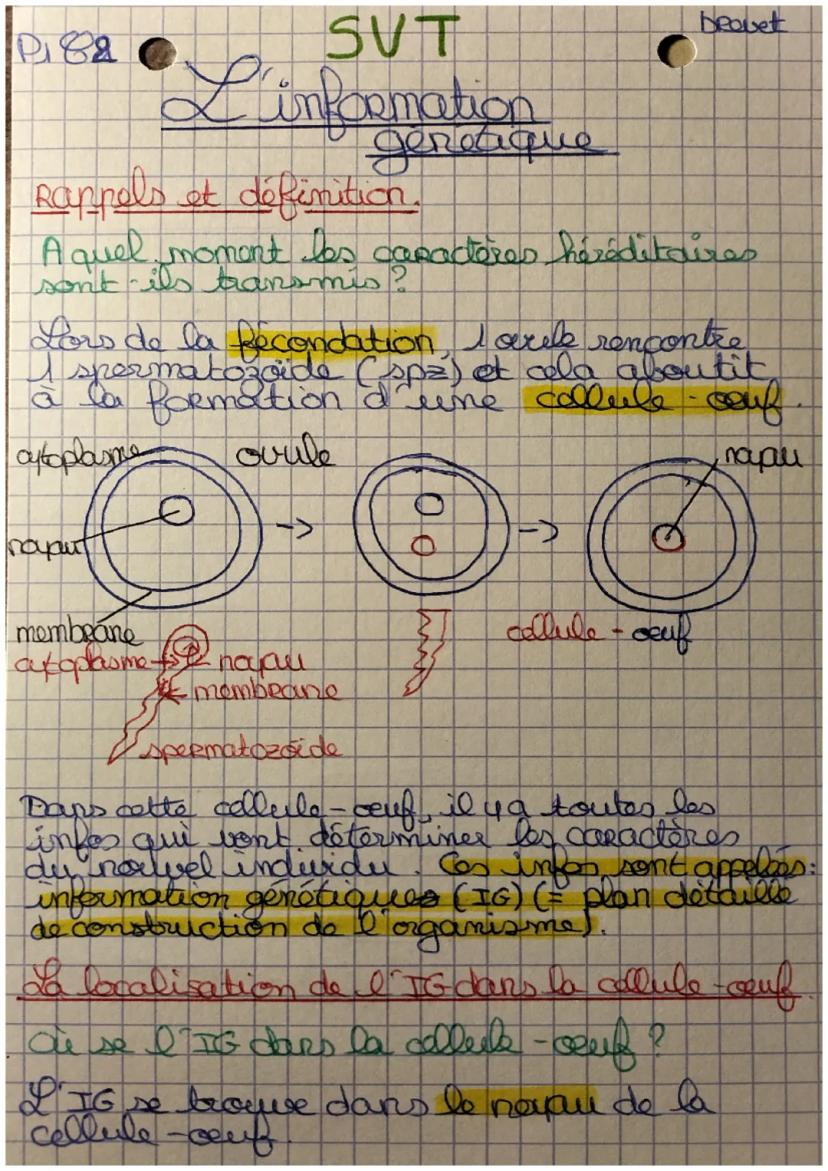 SVT
L'information
génétique
Rappels et définition.
A quel moment les caractères héréditaires
sont-ils transmis?
Lors de la fécondation, 1 ovule rencontre
1 spermatozoïde (spz) et cela aboutit
à la formation d'une cellule-oeuf.
cytoplasme
ovule
noyau
noyau
membrane
cellule-oeuf
cytoplasme
noyau
membrane
spermatozoïde
Dans cette cellule-oeuf, il y a toutes les
infos qui vont déterminer les caractères
du nouvel individu. Ces infos sont appelées:
information génétique (IG) (= plan détaillé
de construction de l'organisme).
La localisation de l'IG dans la cellule-oeuf.
Où se l'IG dans la cellule-oeuf?
L'IG se trouve dans le noyau de la
cellule-oeuf.